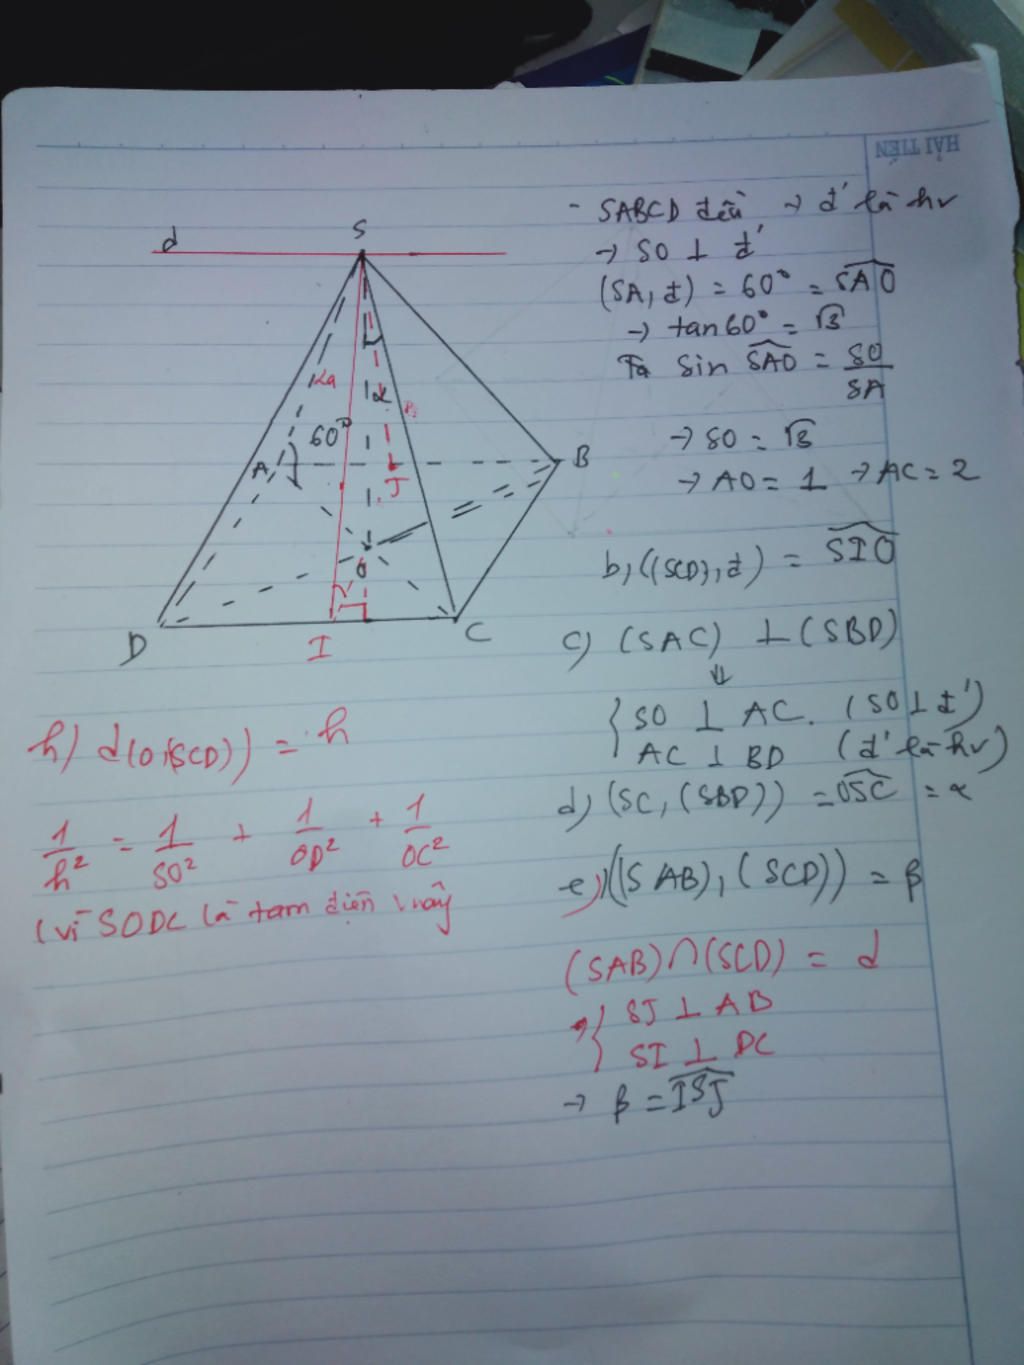 HẢI TIẾN
d
S
2a
60°
α
A
B
J
O
D
I
C
- SABCD đều → đ' là hv
→ SO ⊥ đ'
(SA, đ) = 60° = SAO
→ tan60° = √3
Ta sin SAO = SO/SA
→ SO = √3
→ AO = 1 → AC = 2
b, ((SCD), đ) = SIO
c) (SAC) ⊥ (SBD)
⇓
{ SO ⊥ AC. (SO ⊥ đ')
AC ⊥ BD (đ' là hv)
d) (SC, (SBD)) = OSC = α
e) ((SAB), (SCD)) = β
(SAB) ∩ (SCD) = d
{ SJ ⊥ AB
SI ⊥ DC
→ β = ISJ
h) d(O,(SCD)) = h
1/h² = 1/SO² + 1/OD² + 1/OC²
(vì SODC là tam diện vuông